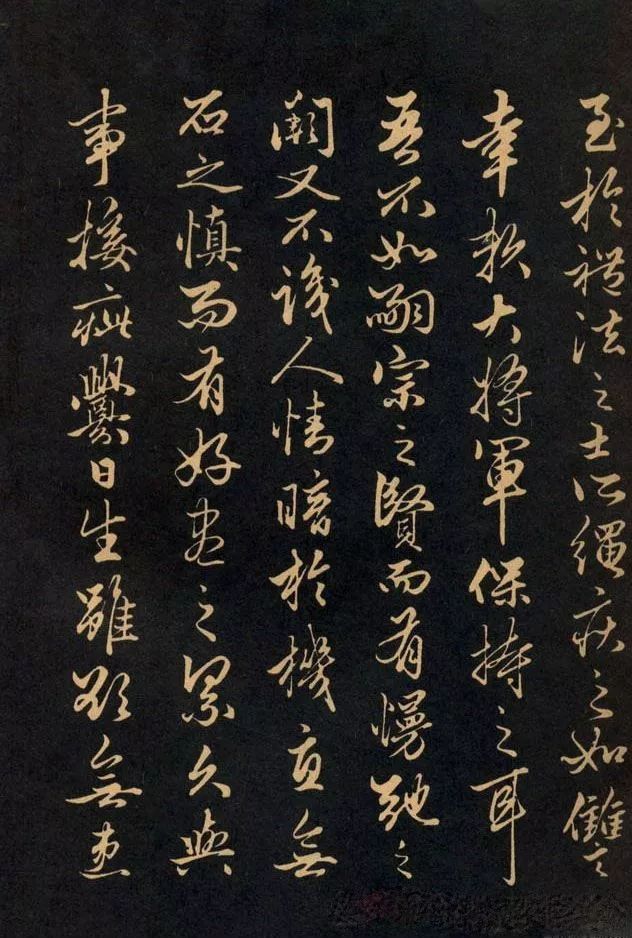 至於禮法之士所繩疾之如讎
幸賴大將軍保持之耳
吾不如嗣宗之賢而有慢弛之
闕又不識人情暗於機宜無
石之慎而有好盡之累久與
事接疵釁日生雖欲無患